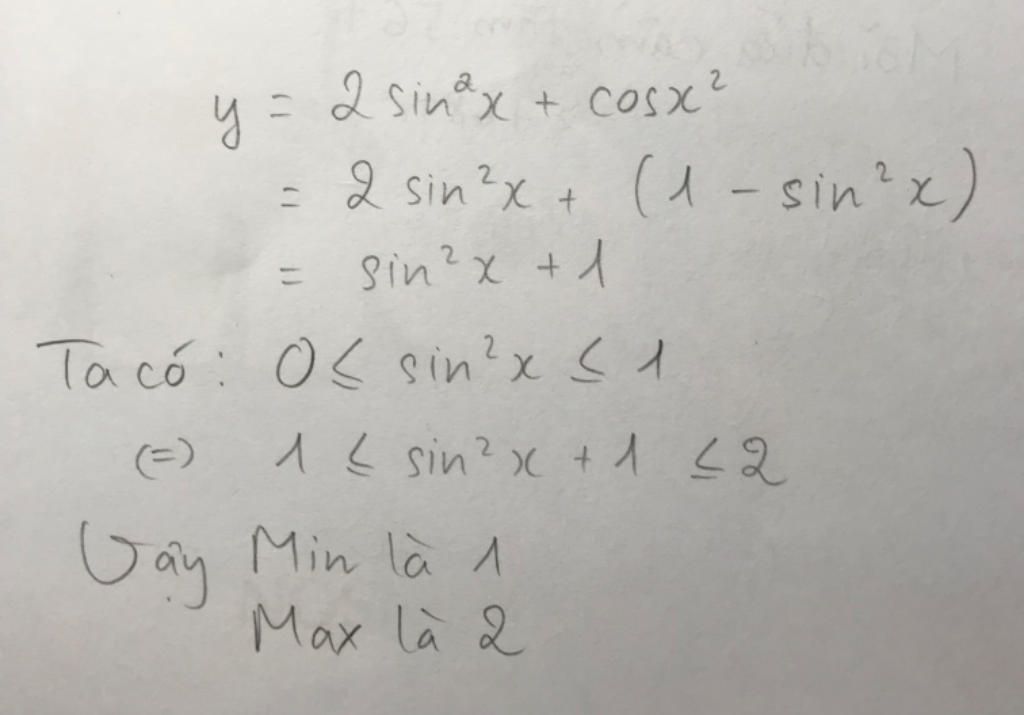 y = 2 sin²x + cosx²
= 2 sin²x + (1 - sin²x)
= sin²x + 1
Ta có: 0 ≤ sin²x ≤ 1
(=) 1 ≤ sin²x + 1 ≤ 2
Vậy Min là 1
Max là 2